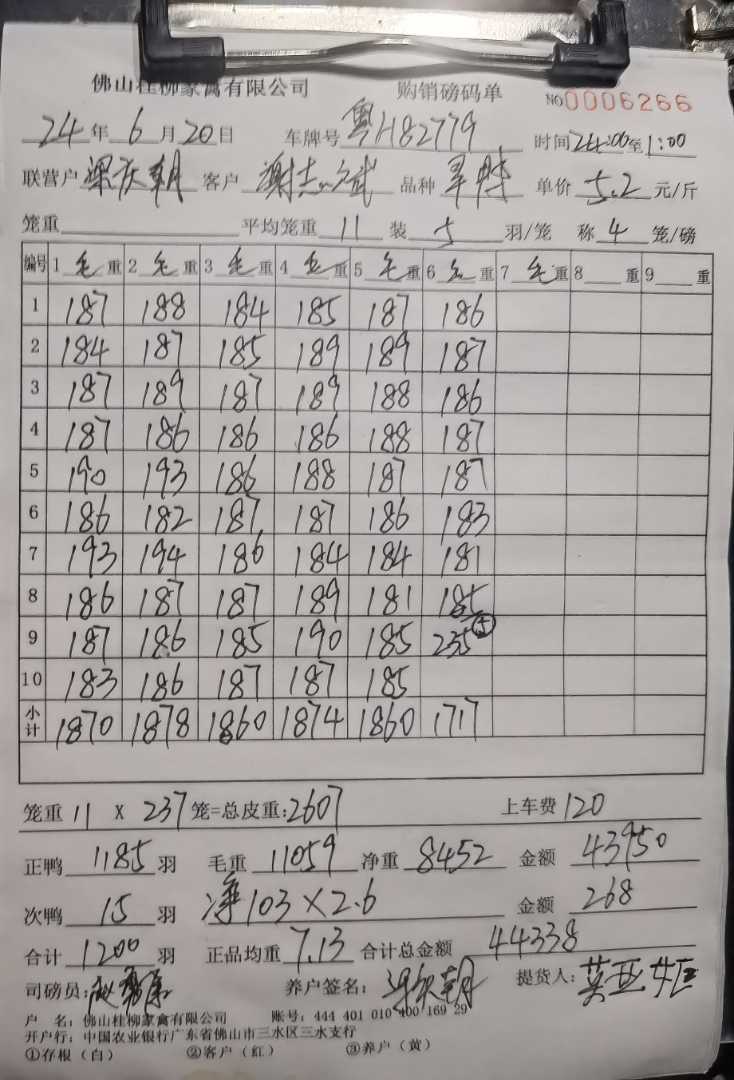 佛山桂柳家禽有限公司 购销磅码单 NO 0006266
24 年 6 月 20 日 车牌号 粤H82779 时间 24:00 至 1:00
联营户 梁庆朝 客户 谢志斌 品种 单价 5.2 元/斤
笼重 平均笼重 11 装 5 羽/笼 称 4 笼/磅
编号 1 毛 重 2 毛 重 3 毛 重 4 毛 重 5 毛 重 6 毛 重 7 毛 重 8 重 9 重
1 187 188 184 185 187 186
2 184 187 185 189 189 187
3 187 189 187 189 188 186
4 187 186 186 186 188 187
5 190 193 186 188 187 187
6 186 182 187 187 186 183
7 193 194 186 184 184 181
8 186 187 187 189 181 185
9 187 186 185 190 185 235 ⑤
10 183 186 187 187 185
小计 1870 1878 1860 1874 1860 1717
笼重 11 X 237 笼=总皮重: 2607 上车费 120
正鸭 1185 羽 毛重 11059 净重 8452 金额 43950
次鸭 15 羽 净 103 × 2.6 金额 268
合计 1200 羽 正品均重 7.13 合计总金额 44338
司磅员: 养户签名: 提货人:
户 名: 佛山桂柳家禽有限公司 账号: 444 401 010 400 169 29
开户行: 中国农业银行广东省佛山市三水区三水支行
①存根(白) ②客户(红) ③养户(黄)